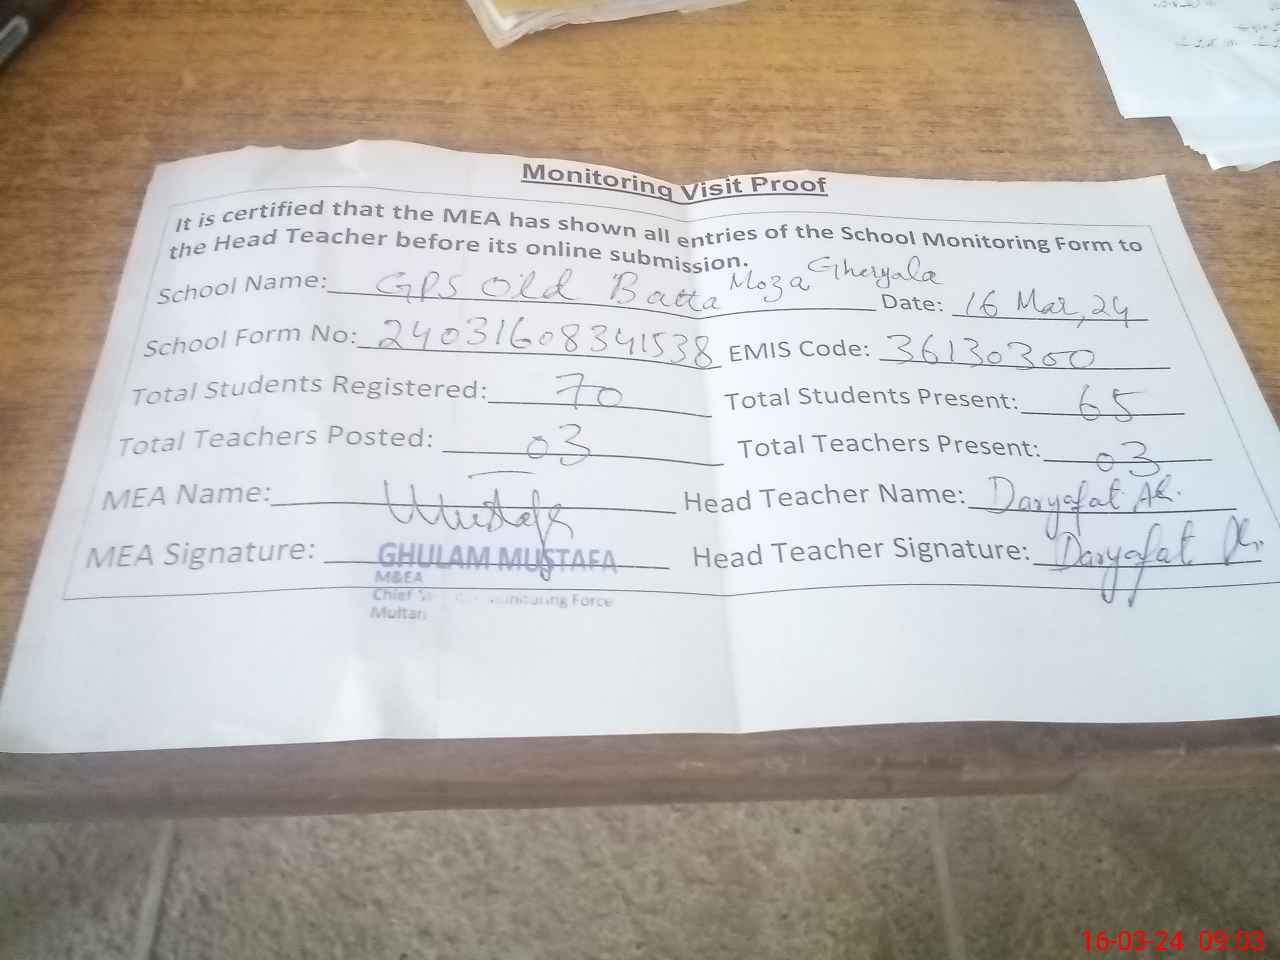 Monitoring Visit Proof
It is certified that the MEA has shown all entries of the School Monitoring Form to
the Head Teacher before its online submission.
School Name: GPS Old Batta Moza Gheryala Date: 16 Mar, 24
School Form No: 24031608341538 EMIS Code: 36130300
Total Students Registered: 70 Total Students Present: 65
Total Teachers Posted: 03 Total Teachers Present: 03
MEA Name: Mustafa Head Teacher Name: Daryafat Ali
MEA Signature: GHULAM MUSTAFA Head Teacher Signature: Daryafat
M&EA
Chief Monitoring Force
Multan
16-03-24 09:03